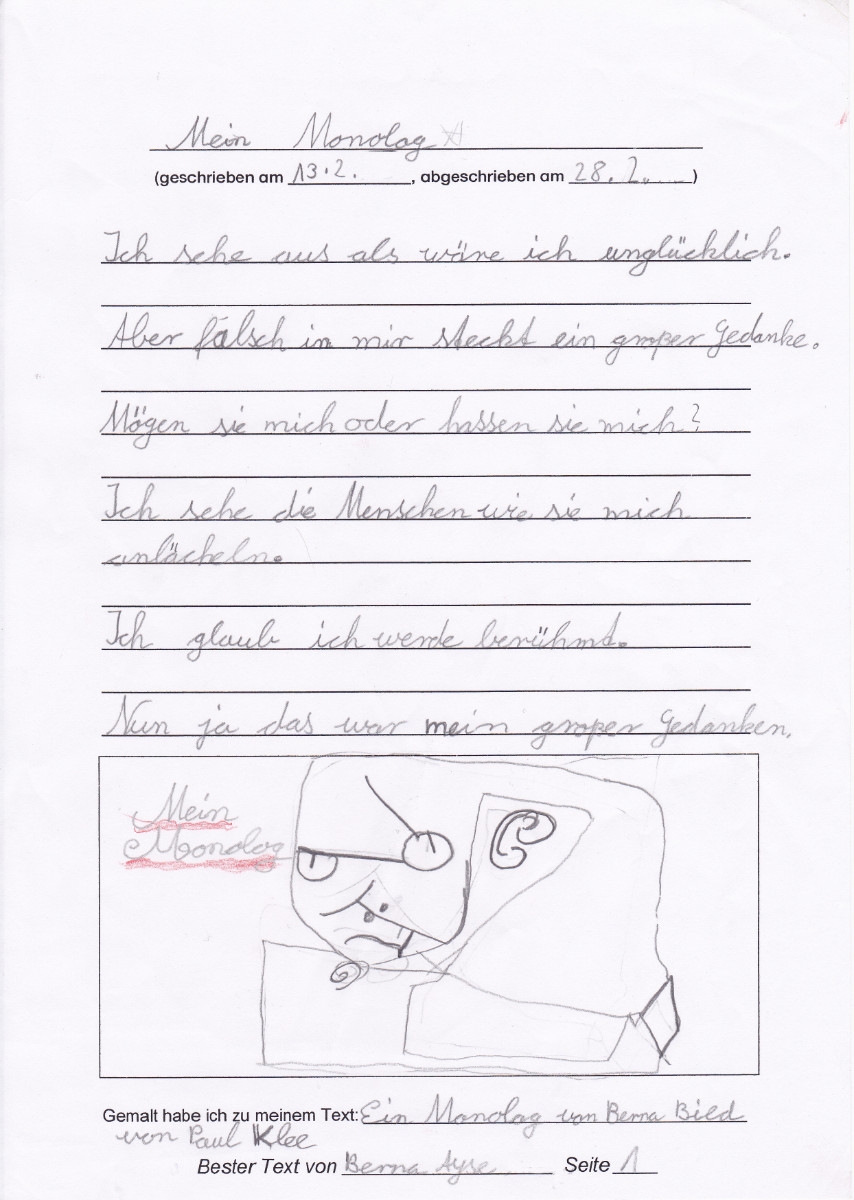 Mein Monolog
(geschrieben am 13.2. , abgeschrieben am 28.2. )
Ich sehe aus als wäre ich unglücklich.
Aber falsch in mir steckt ein großer Gedanke.
Mögen sie mich oder hassen sie mich?
Ich sehe die Menschen wie sie mich
anlächeln.
Ich glaub ich werde berühmt.
Nun ja das war mein großer Gedanken.
Mein
Monolog
Gemalt habe ich zu meinem Text: Ein Monolog von Berna Bild
von Paul Klee
Bester Text von Berna Ayse Seite 1